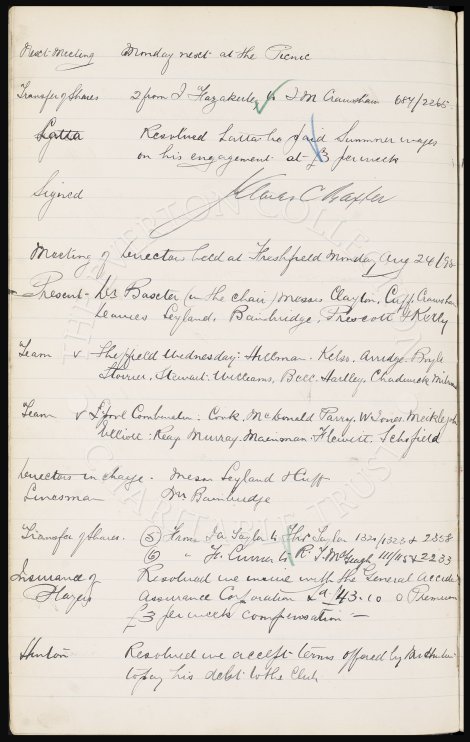 Next Meeting Monday next at the Picnic
Transfer of Shares 2 from J Hazakerley to J M Crawshaw 687/2265
Latta Resolved Latta be paid Summer wages
on his engagement at £3 per week
Signed James C Baxter
Meeting of Directors held at Freshfield Monday, Aug 24/96
Present - Dr Baxter (in the chair) Messrs Clayton, Cuff, Crawshaw
Leyland, Bainbridge, Prescott & Kelly
Team v Sheffield Wednesday: Hillman. Kelso. Arridge. Boyle
Storrier. Stewart. Williams, Bell. Hartley. Chadwick Milward
Team v L'pool Combination: Cook. McDonald Parry. W Jones. Meiklejohn
Elliott. Reay Murray. Hewitt. Schofield
Directors in charge. Messrs Leyland & Cuff
Linesman Mr Bainbridge
Transfer of Shares. (3) From Ja Taylor to Thos Taylor 1320/1323 & 2358
(6) " H. Currier to R. J. McGeagh 111/115 & 2233
Insurance of Resolved we insure with the General Accident
Players Assurance Corporation £43.10.0 Premium
£3 per week compensation -
Hinton Resolved we accept terms offered by
to pay his debt to the Club